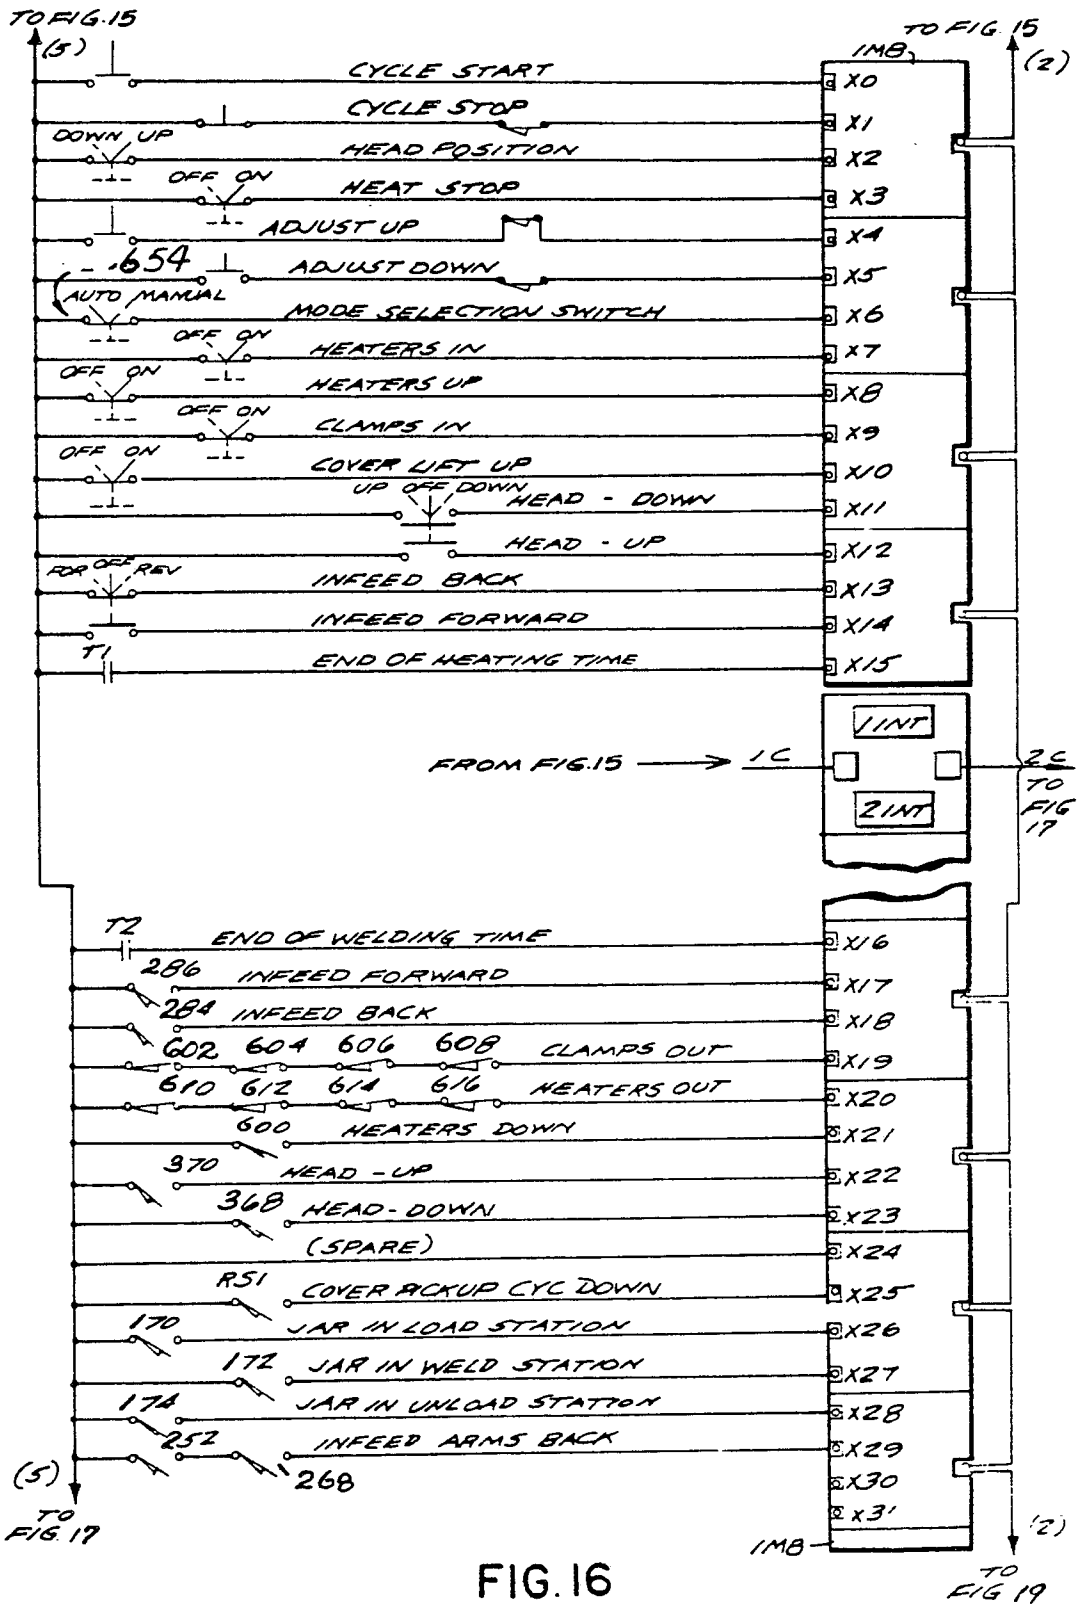 TO FIG. 15
(5)
TO FIG. 15
(2)
1M8
CYCLE START
X0
CYCLE STOP
X1
DOWN UP
HEAD POSITION
X2
OFF ON
HEAT STOP
X3
ADJUST UP
X4
.654
ADJUST DOWN
X5
AUTO MANUAL
MODE SELECTION SWITCH
X6
OFF ON
HEATERS IN
X7
OFF ON
HEATERS UP
X8
OFF ON
CLAMPS IN
X9
OFF ON
COVER LIFT UP
X10
UP OFF DOWN
HEAD - DOWN
X11
HEAD - UP
X12
FOR OFF REV
INFEED BACK
X13
INFEED FORWARD
X14
T1
END OF HEATING TIME
X15
1 INT
FROM FIG. 15
1C
2C
TO
FIG
17
2 INT
T2
END OF WELDING TIME
X16
286
INFEED FORWARD
X17
284
INFEED BACK
X18
602 604 606 608
CLAMPS OUT
X19
610 612 614 616
HEATERS OUT
X20
600
HEATERS DOWN
X21
370
HEAD - UP
X22
368
HEAD - DOWN
X23
(SPARE)
X24
RS1
COVER PICKUP CYC DOWN
X25
170
JAR IN LOAD STATION
X26
172
JAR IN WELD STATION
X27
174
JAR IN UNLOAD STATION
X28
252
INFEED ARMS BACK
X29
268
X30
X31
(5)
TO
FIG. 17
1M8
(2)
TO
FIG 19
FIG. 16